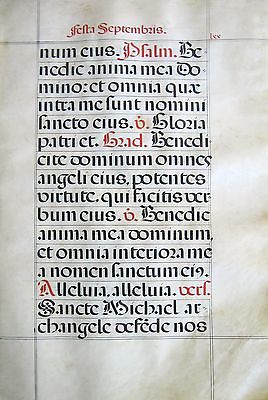 Festa Septembris.
lxx
num eius. Psalm. Be
nedic anima mea Do
mino: et omnia quæ
intra me sunt nomini
sancto eius. ℣. Gloria
patri et. Grad. Benedi
cite dominum omnes
angeli eius, potentes
virtute, qui facitis ver
bum eius. ℣. Benedic
anima mea dominum,
et omnia interiora me
a nomen sanctum eiꝰ.
Alleluia, alleluia. vers.
Sancte Michael ar-
changele defẽde nos